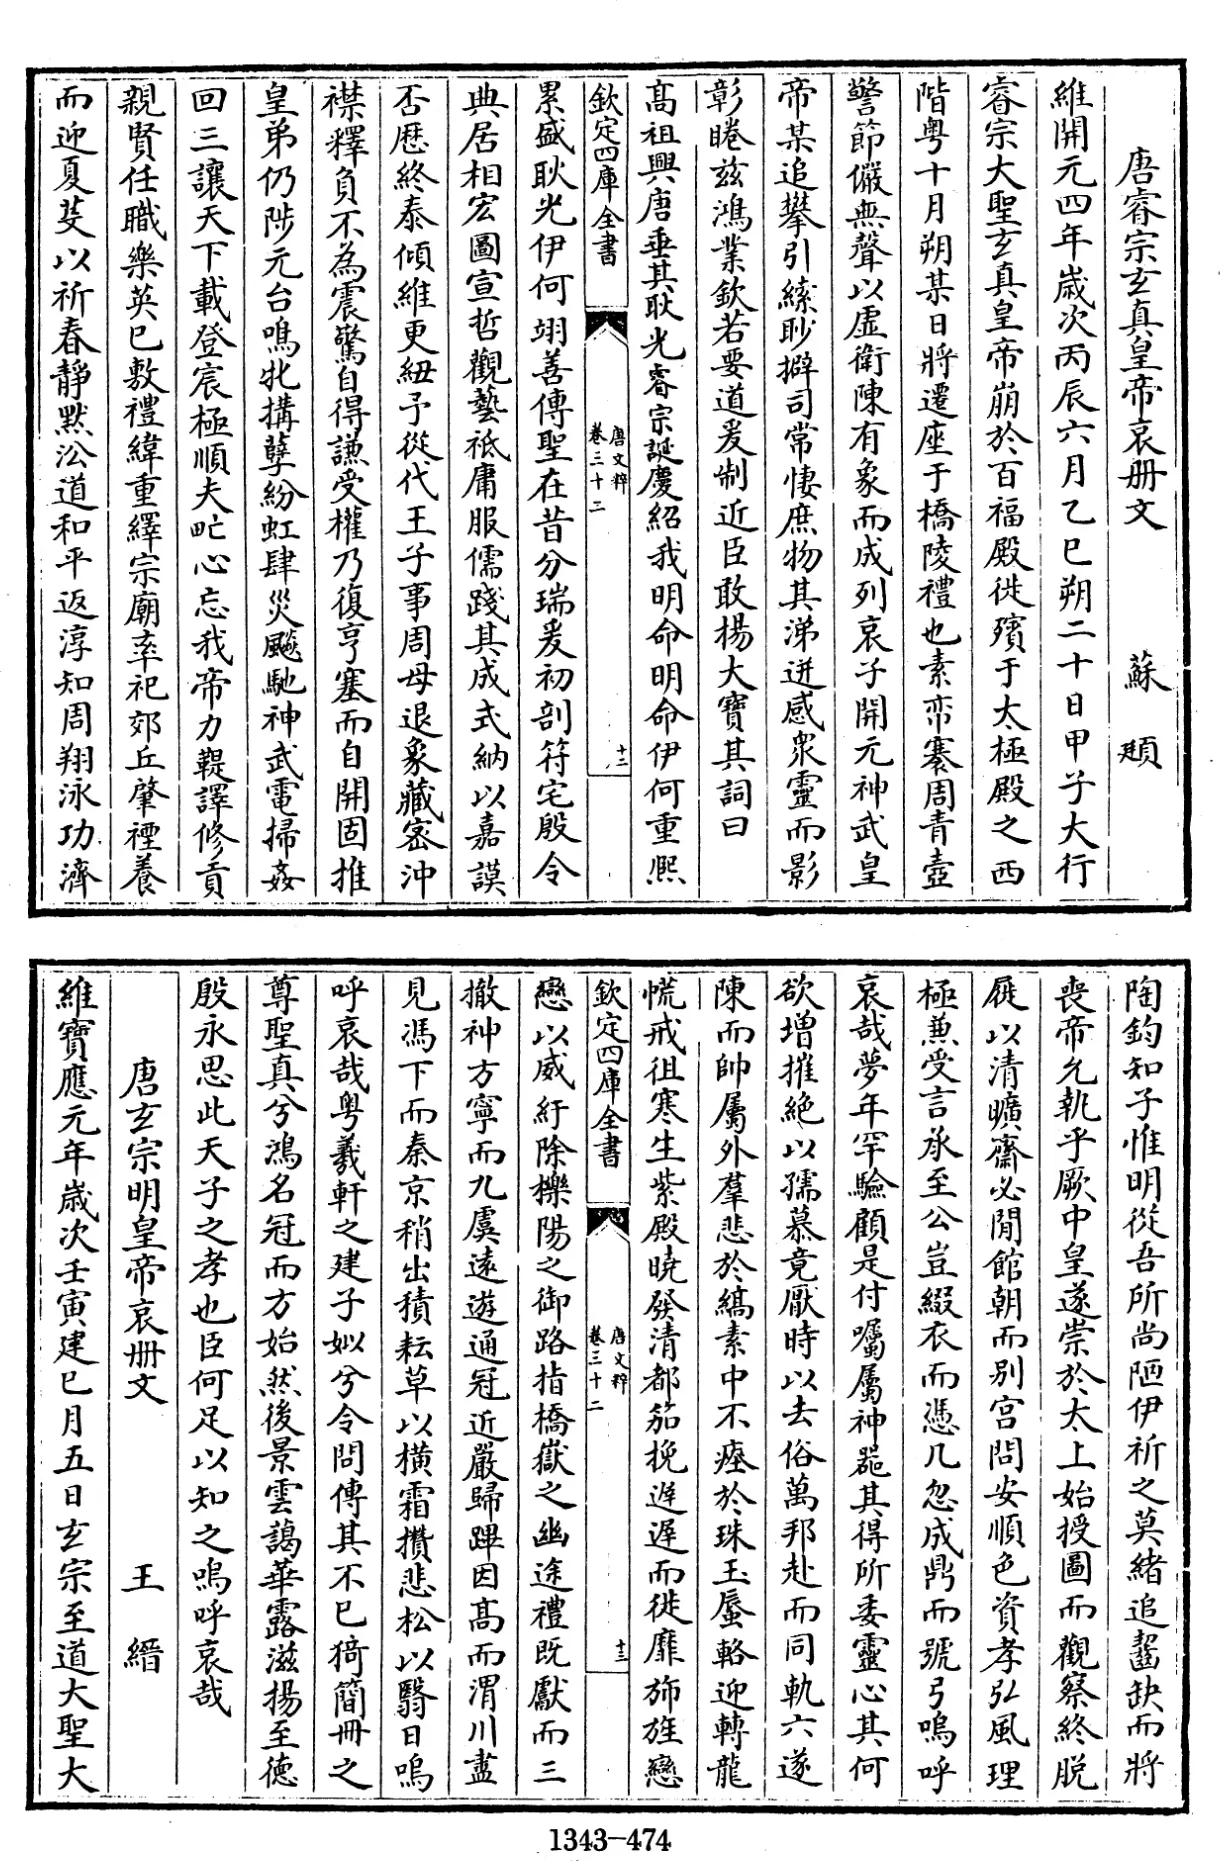 唐睿宗玄真皇帝哀册文 蘇頲
維開元四年歲次丙辰六月乙巳朔二十日甲子大行
睿宗大聖玄真皇帝崩於百福殿徙殯于太極殿之西
階粤十月朔某日將遷座于橋陵禮也素帟褰周青壺
警節儼無聲以虛衛陳有象而成列哀子開元神武皇
帝某追攀引縿眇擗司常悽庶物其涕迸感衆靈而影
彰睠兹鴻業欽若要道爰制近臣敢揚大寶其詞曰
髙祖興唐垂其耿光睿宗誕慶紹我明命明命伊何重熙
欽定四庫全書 唐文粹 卷三十二 十二
累盛耿光伊何翊善傳聖在昔分瑞爰初剖符宅殷令
典居相宏圖宣哲觀藝祗庸服儒踐其成式納以嘉謨
否歴終泰傾維更紐予從代王子事周母退象藏密沖
襟釋負不為震驚自得謙受權乃復亨塞而自開固推
皇弟仍陟元台鳴牝搆孽紛虹肆災飈馳神武電掃姦
回三讓天下載登宸極順夫甿心忘我帝力鞮譯修貢
親賢任職樂英已敷禮緯重繹宗廟率祀郊丘肇禋養
而迎夏芟以祈春靜黙㳂道和平返淳知周翔泳功濟
陶鈞知子惟明從吾所尚陋伊祈之莫緒追齧缺而將
喪帝允執乎厥中皇遂崇於太上始授圖而觀察終脱
屣以清曠齋必閒館朝而别宫問安順色資孝弘風理
極兼受言承至公豈綴衣而憑几忽成鼎而號弓嗚呼
哀哉夢年罕驗顧是付囑屬神器其得所委靈心其何
欲增摧絶以孺慕竟厭時以去俗萬邦赴而同軌六遂
陳而帥屬外羣悲於縞素中不瘞於珠玉蜃輅迎轉龍
慌戒徂寒生紫殿曉發清都笳挽遲遲而徙靡斾旌戀
欽定四庫全書 唐文粹 卷三十二 十三
戀以威紆除櫟陽之御路指橋嶽之幽途禮既獻而三
撤神方寧而九虞逺遊通冠近嚴歸蹕因髙而渭川盡
見馮下而秦京稍出積耘草以横霜攅悲松以翳日嗚
呼哀哉粤羲軒之建子姒兮令問傳其不已猗簡冊之
尊聖真兮鴻名冠而方始然後景雲藹華露滋揚至德
殷永思此天子之孝也臣何足以知之嗚呼哀哉
唐玄宗明皇帝哀冊文 王縉
維寶應元年歲次壬寅建巳月五日玄宗至道大聖大
1343-474